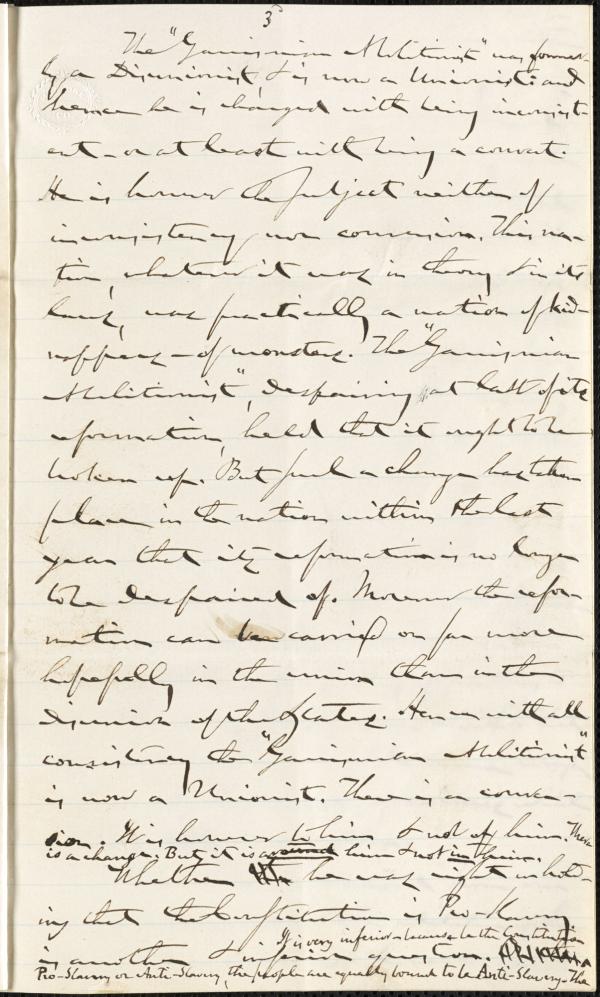 3
The "Garrisonian Abolitionist" was former-
ly a Disunionist, & is now a Unionist: and
hence he is charged with being inconsist-
ent - or at least with being a convert.
He is however the subject neither of
inconsistency nor conversion. This na-
tion, whatever it was in theory & in its
laws, was practically a nation of kid-
nappers - of monsters. The "Garrisonian
Abolitionist", despairing at last of its
reformation, held that it ought to be
broken up. But such a change has taken
place in the nation within the last
year that its reformation is no longer
to be despaired of. Moreover the refor-
mation can be carried on far more
hopefully in the union than in the
disunion of the States. Hence with all
consistency the "Garrisonian Abolitionist"
is now a Unionist. There is a conver-
sion. It is however to him & not of him. There
is a change. But it is around him & not in him.
Whether he was right in hold-
ing that the Constitution is Pro-Slavery
is another & inferior question.
It is very inferior - because be the Constitution
Pro-Slavery or Anti-Slavery, the people are equally bound to be Anti-Slavery. The